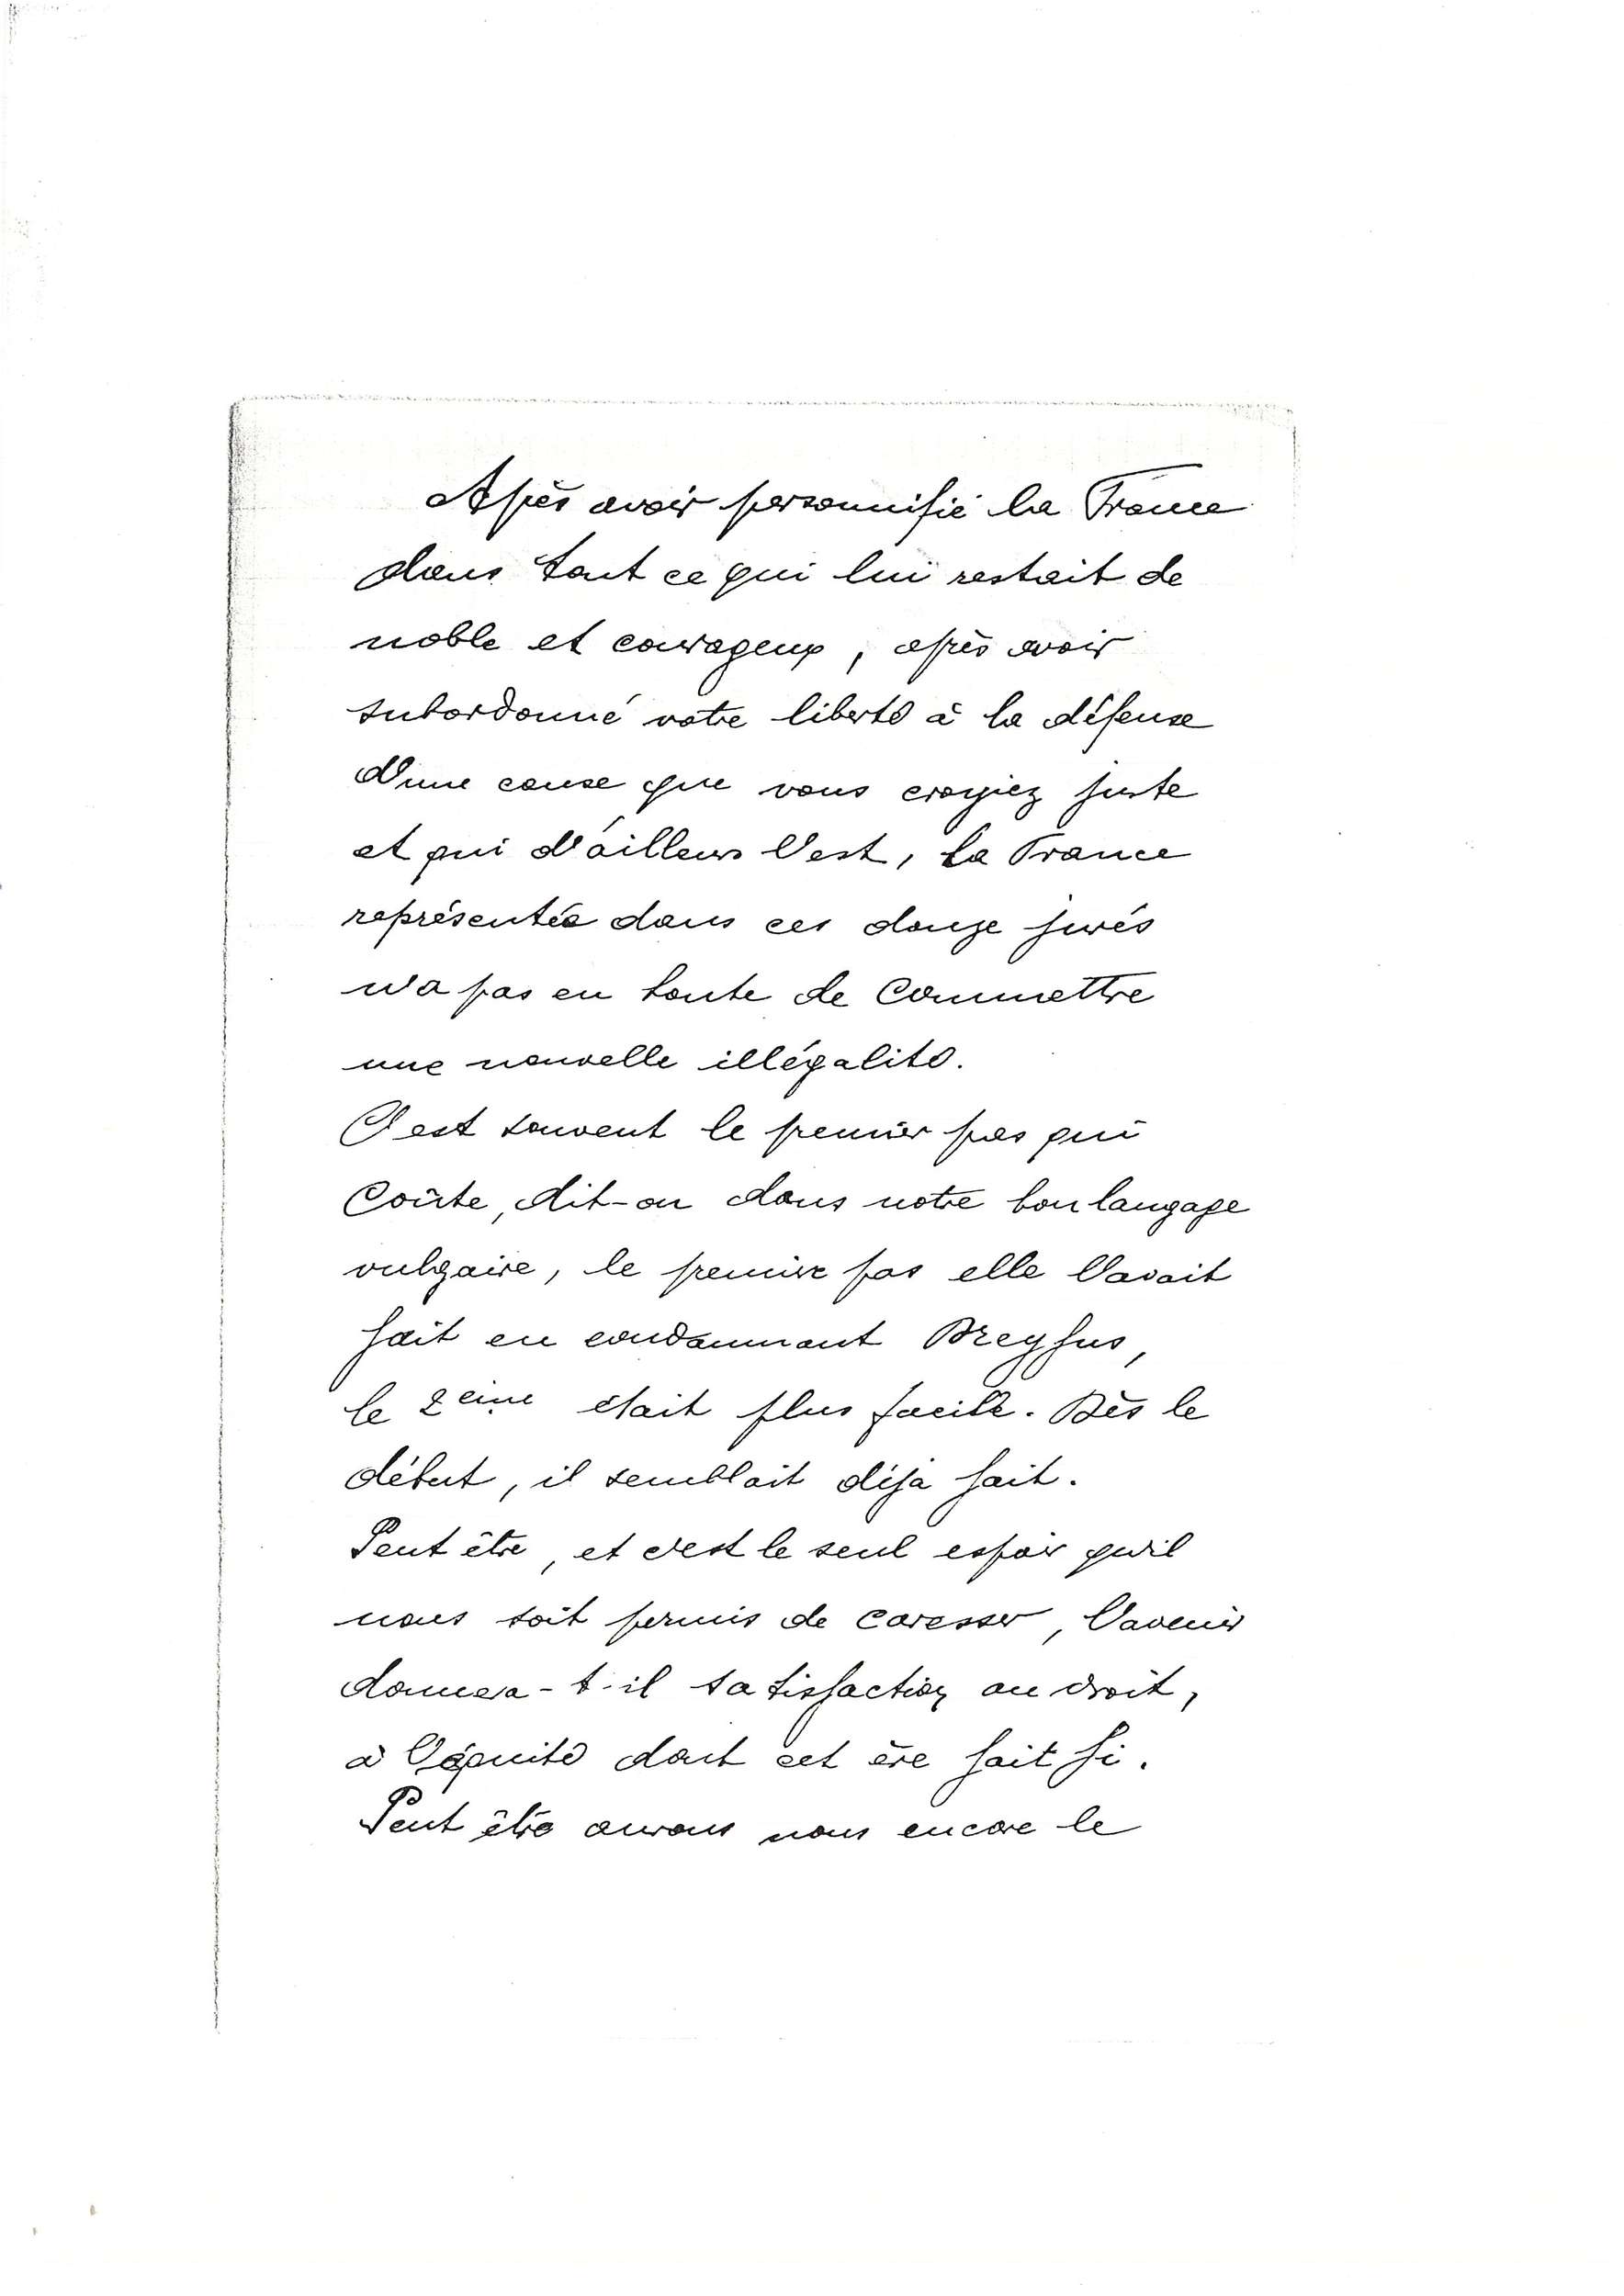 Après avoir personnifié la France
dans tout ce qui lui restait de
noble et courageux, après avoir
subordonné votre liberté à la défense
d'une cause que vous croyiez juste
et qui d'ailleurs l'est, la France
représentée dans ces douze jurés
n'a pas eu honte de commettre
une nouvelle illégalité.
C'est souvent le premier pas qui
coûte, dit-on dans notre bon langage
vulgaire, le premier pas elle l'avait
fait en condamnant Dreyfus,
le 2eme était plus facile. Dès le
début, il semblait déja fait.
Peut être, et c'est le seul espoir qu'il
nous soit permis de caresser, l'avenir
donnera-t-il satisfaction au droit,
à l'équité dont cet ère fait fi.
Peut être aurons nous encore le